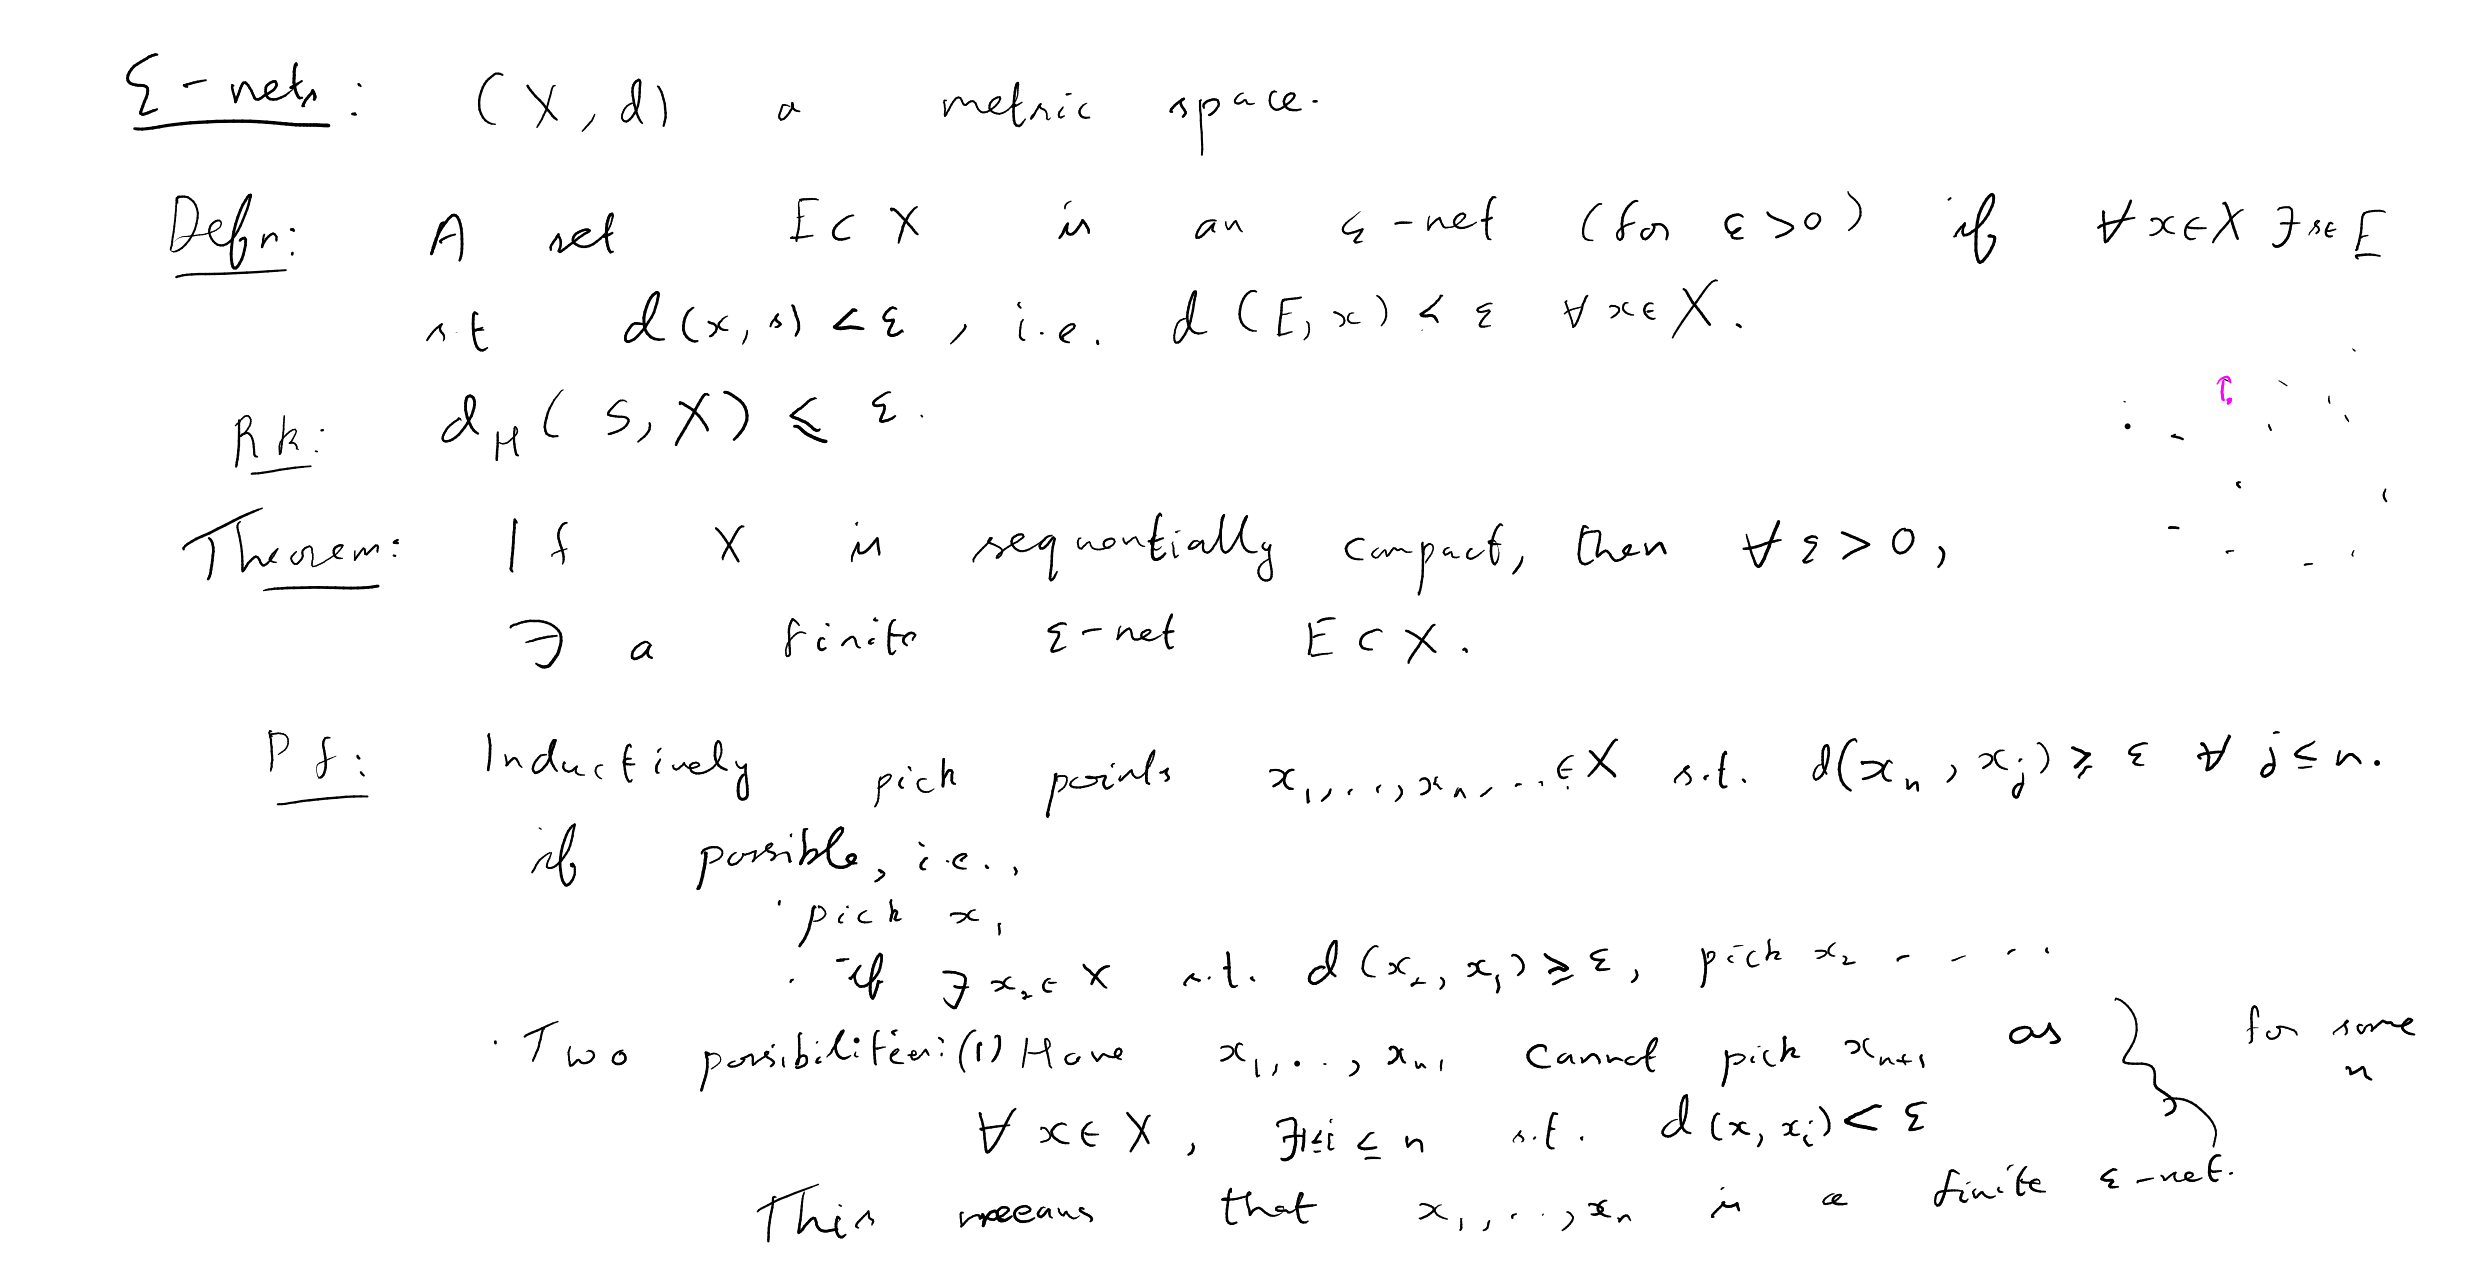 ε-nets: (X, d) a metric space.
Defn: A set E ⊂ X is an ε-net (for ε > 0) if ∀ x ∈ X ∃ s ∈ E
s.t d(x, s) < ε, i.e. d(E, x) < ε ∀ x ∈ X.
Rk: d_H(S, X) ≤ ε.
Theorem: If X is sequentially compact, then ∀ ε > 0,
∃ a finite ε-net E ⊂ X.
Pf: Inductively pick points x₁, ..., xₙ, ... ∈ X s.t. d(xₙ, xⱼ) ≥ ε ∀ j ≤ n.
if possible, i.e.,
· pick x₁
· if ∃ x₂ ∈ X s.t. d(x₂, x₁) ≥ ε, pick x₂ - - - .
· Two possibilities: (1) Have x₁, ..., xₙ, cannot pick xₙ₊₁ as } for some n
∀ x ∈ X, ∃ 1 ≤ i ≤ n s.t. d(x, xᵢ) < ε
This means that x₁, ..., xₙ is a finite ε-net.